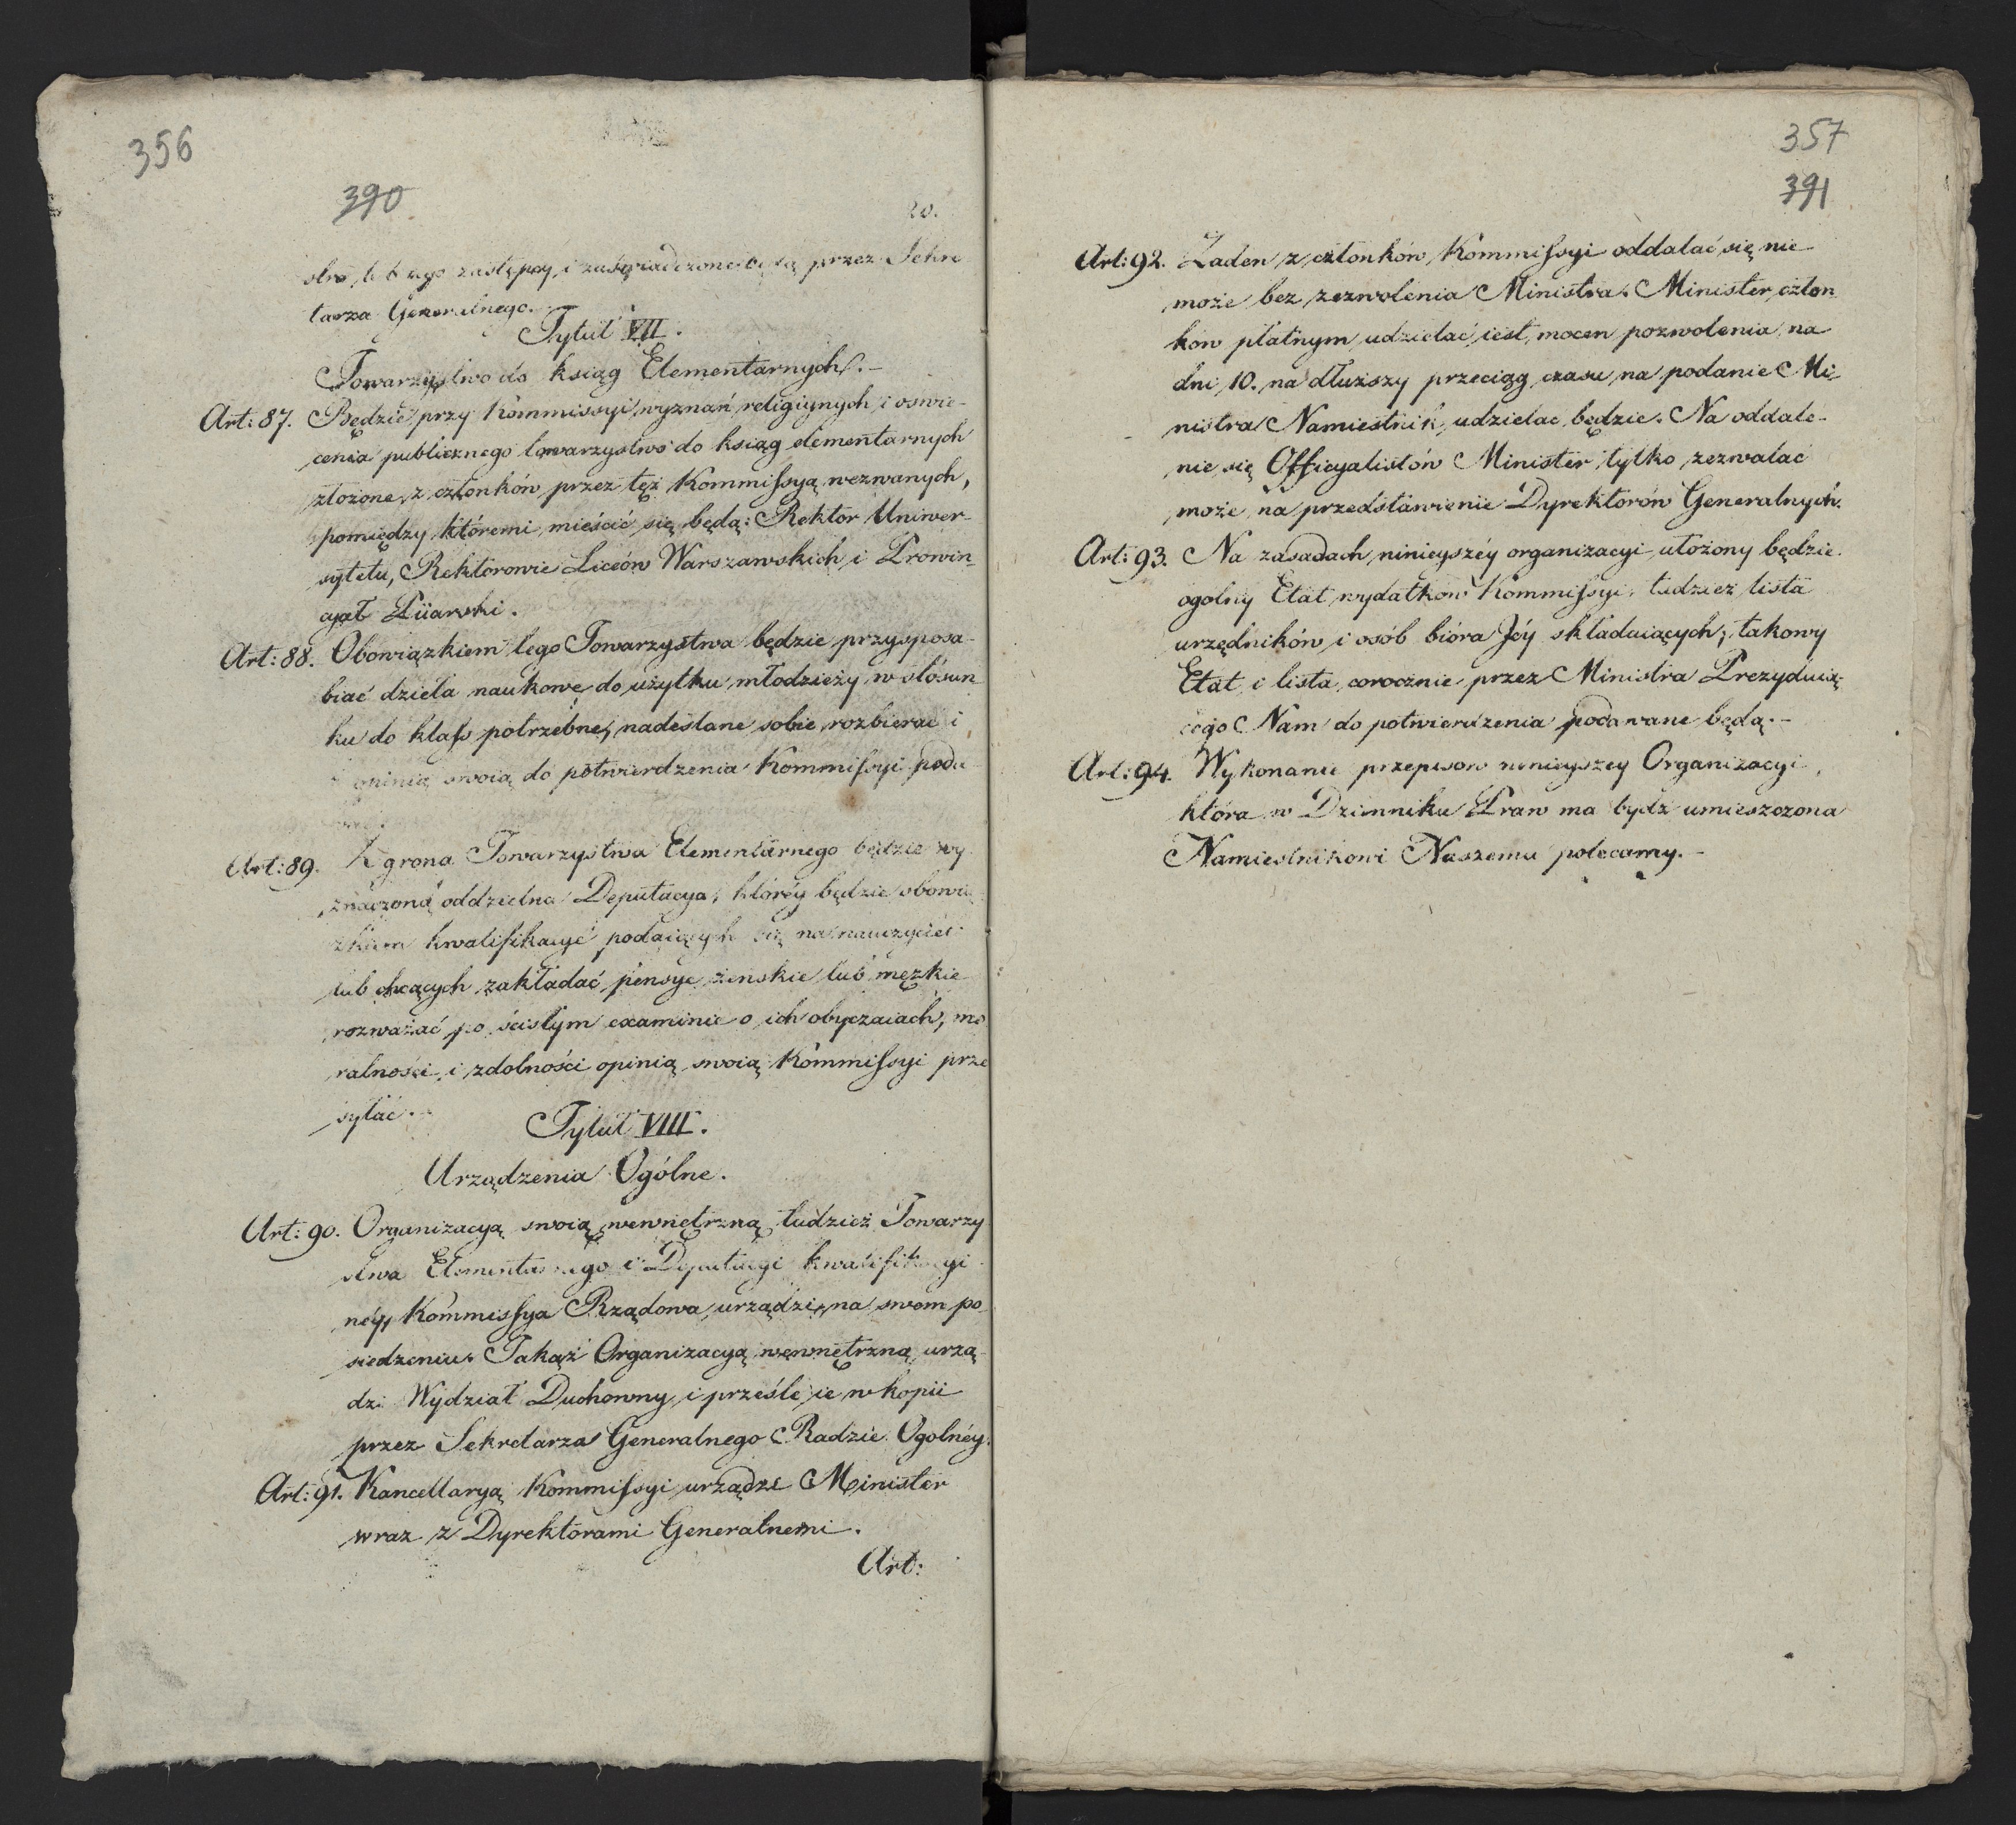 356
390
20.
stra, lub iego zastępcy, i zaświadczone będą przez Sekre
tarza Generalnego.
Tytuł VII.
Towarzystwo do ksiąg Elementarnych.-
Art: 87. Będzie przy Kommissyi wyznań religiynych i oswie-
cenia publicznego towarzystwo do ksiąg elementarnych
złożone z członków przez tęż Kommissyą wezwanych,
pomiędzy któremi mieścić się będą: Rektor Uniwer-
sytetu, Rektorowie Liceów Warszawskich i Prowin-
cyał Piiarski.
Art: 88. Obowiązkiem tego Towarzystwa będzie przysposa-
biać dzieła naukowe do użytku młodzieży w stósun
ku do klass potrzebne, nadesłane sobie rozbierać i
opinią swoią do potwierdzenia Kommissyi poda-
Art: 89. Z grona Towarzystwa Elementarnego będzie wy
znaczona oddzielna Deputacya, któréy będzie obowią
zkiem kwalifikacye podaiących się na nauczycieli
lub chcących zakładać pensye żenskie lub męzkie
rozważać, po ścisłym examinie o ich obyczaiach, mo
ralności i zdolności opinią swoią Kommissyi prze
syłać.
Tytuł VIII.
Urządzenia Ogólne.
Art: 90. Organizacyą swoią wewnętrzną tudzież Towarzy
stwa Elementarnego i Deputacyi kwalifikacyi
néy, Kommissya Rządowa urządzi na swom po-
siedzeniu. Takąż Organizacyą wewnętrzną urzą-
dzi Wydział Duchowny i prześle ie w kopii
przez Sekretarza Generalnego Radzie Ogolnéy.
Art: 91. Kancellaryą Kommissyi urządzi Minister
wraz z Dyrektorami Generalnemi.
Art:
357
391
Art: 92. Żaden z członków Kommissyi oddalać się nie
może bez zezwolenia Ministra. Minister człon
kom płatnym udzielać iest mocen pozwolenia na
dni 10. na dłuższy przeciąg czasu na podanie Mi-
nistra Namiestnik udzielac będzie. Na oddale-
nie się Officyalistów Minister tylko zezwalać
może na przedstawienie Dyrektorów Generalnych.
Art: 93. Na zasadach ninieyszéy organizacyi ułożony będzie
ogolny Etat wydatków Kommissyi, tudzież lista
urzędników i osób bióra Jéy składaiących; takowy
Etat i lista corocznie przez Ministra Prezyduią-
cego Nam do potwierdzenia podawane będą.-
Art: 94. Wykonanie przepisow ninieyszey Organizacyi,
która w Dzienniku Praw ma bydź umieszczona
Namiestnikowi Naszemu polecamy.-